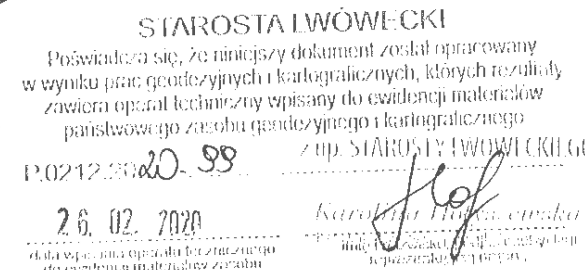 STAROSTA LWÓWECKI
Poświadcza się, że niniejszy dokument został opracowany
w wyniku prac geodezyjnych i kartograficznych, których rezultaty
zawiera operat techniczny wpisany do ewidencji materiałów
państwowego zasobu geodezyjnego i kartograficznego
P.0212.2020-99
z up. STAROSTY LWÓWECKIEGO
26. 02. 2020
Karolina
data wpisania operatu technicznego
do ewidencji materiałów zasobu